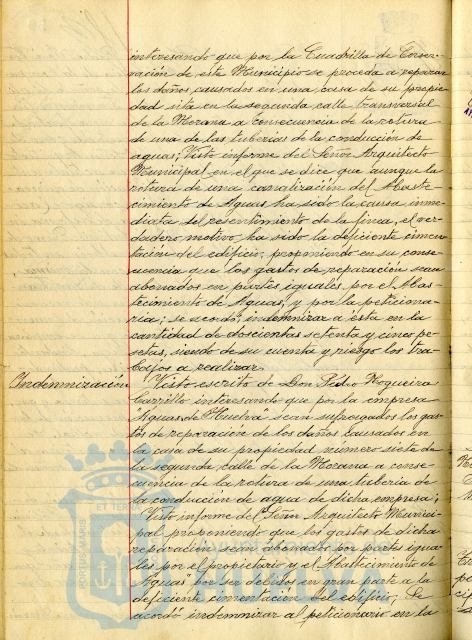 interesando que por la Cuadrilla de Conser-
vación de este Municipio se proceda a reparar
los daños causados en una casa de su propie-
dad sita en la segunda calle transversal
de la Morana a consecuencia de la rotura
de una de las tuberías de la conducción de
aguas; Visto informe del Señor Arquitecto
Municipal en el que se dice que aunque la
rotura de una canalización del Abaste-
cimiento de Aguas ha sido la causa inme-
diata del resentimiento de la finca, el ver-
dadero motivo ha sido la deficiente cimen-
tación del edificio, proponiendo en su conse-
cuencia que los gastos de reparación sean
abonados en partes iguales por el Abas-
tecimiento de Aguas, y por la peticiona-
ria; se acordó; indemnizar a ésta en la
cantidad de doscientas setenta y cinco pe-
setas, siendo de su cuenta y riesgo los tra-
bajos a realizar.
Indemnización
Visto escrito de Don Pedro Nogueira
Carrillo interesando que por la empresa
"Aguas de Huelva" sean sufragados los gas-
tos de reparación de los daños causados en
la casa de su propiedad número siete de
la segunda calle de la Morana a conse-
cuencia de la rotura de una tubería de
la conducción de agua de dicha empresa;
Visto informe del Señor Arquitecto Munici-
pal proponiendo que los gastos de dicha
reparación sean abonados por partes igua-
les por el propietario y el Abastecimiento de
Aguas" por ser debidos en gran parte a la
deficiente cimentación del edificio; Se
acordó indemnizar al peticionario en la